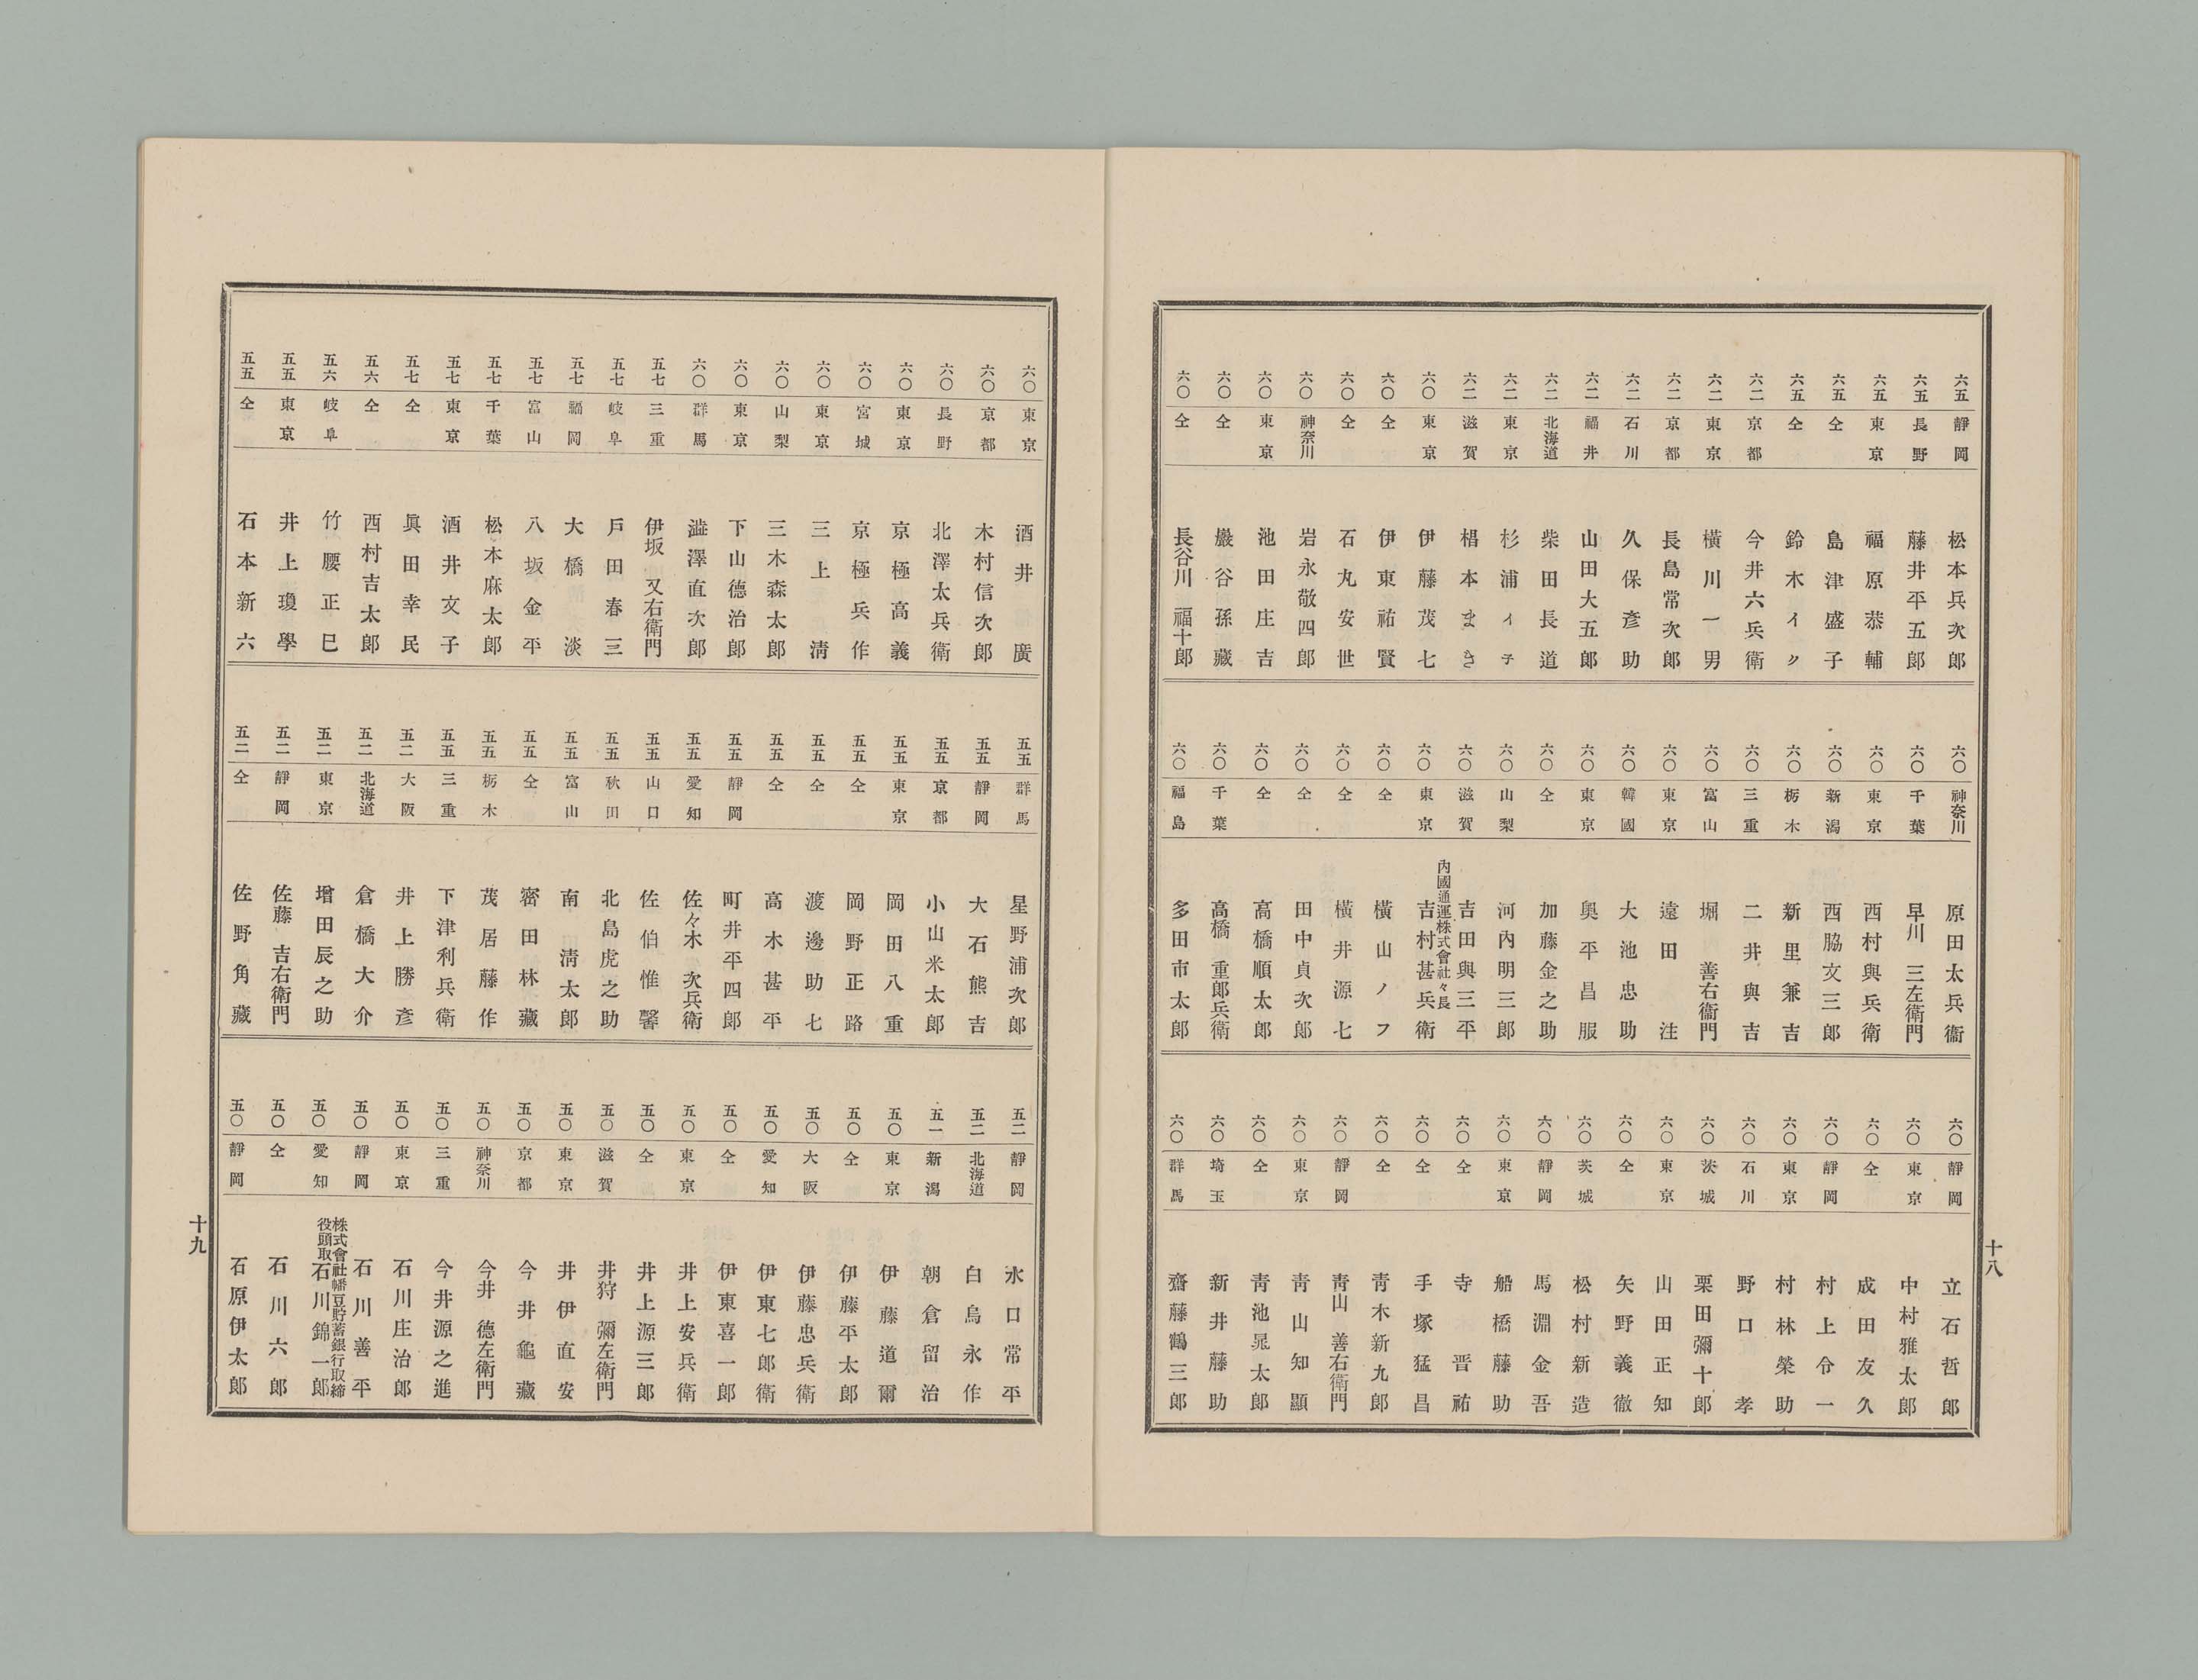 六五 靜岡 松本兵次郎
六五 長野 藤井平五郎
六五 東京 福原恭輔
六五 仝 島津盛子
六五 仝 鈴木イク
六二 京都 今井六兵衛
六二 東京 橫川一男
六二 京都 長島常次郎
六二 石川 久保彥助
六二 福井 山田大五郎
六二 北海道 柴田長道
六二 東京 杉浦イチ
六二 滋賀 椙本まさ
六〇 東京 伊藤茂七
六〇 仝 伊東祐賢
六〇 仝 石丸安世
六〇 神奈川 岩永敬四郎
六〇 東京 池田庄吉
六〇 仝 巖谷孫藏
六〇 仝 長谷川福十郎
六〇 神奈川 原田太兵衞
六〇 千葉 早川三左衛門
六〇 東京 西村與兵衛
六〇 新潟 西脇文三郎
六〇 栃木 新里兼吉
六〇 三重 二井與吉
六〇 富山 堀善右衞門
六〇 東京 遠田注
六〇 韓國 大池忠助
六〇 東京 奧平昌服
六〇 仝 加藤金之助
六〇 山梨 河內明三郎
六〇 滋賀 吉田與三平
六〇 東京 內國通運株式會社々長 吉村甚兵衛
六〇 仝 橫山ノフ
六〇 仝 橫井源七
六〇 仝 田中貞次郎
六〇 仝 高橋順太郎
六〇 千葉 高橋重郎兵衛
六〇 福島 多田市太郎
六〇 靜岡 立石哲郎
六〇 東京 中村雅太郎
六〇 仝 成田友久
六〇 靜岡 村上令一
六〇 東京 村林榮助
六〇 石川 野口孝
六〇 茨城 栗田彌十郎
六〇 東京 山田正知
六〇 仝 矢野義徹
六〇 茨城 松村新造
六〇 靜岡 馬淵金吾
六〇 東京 船橋藤助
六〇 仝 寺晋祐
六〇 仝 手塚猛昌
六〇 仝 靑木新九郎
六〇 靜岡 靑山善右衛門
六〇 東京 靑山知顯
六〇 仝 靑池晁太郎
六〇 埼玉 新井藤助
六〇 群馬 齋藤鶴三郎
十八
六〇 東京 酒井廣
六〇 京都 木村信次郎
六〇 長野 北澤太兵衛
六〇 東京 京極高義
六〇 宮城 京極兵作
六〇 東京 三上淸
六〇 山梨 三木森太郎
六〇 東京 下山德治郎
六〇 群馬 澁澤直次郎
五七 三重 伊坂又右衛門
五七 岐阜 戶田春三
五七 福岡 大橋淡
五七 富山 八坂金平
五七 千葉 松本麻太郎
五七 東京 酒井文子
五七 仝 眞田幸民
五六 仝 西村吉太郎
五六 岐阜 竹腰正巳
五五 東京 井上瓊學
五五 仝 石本新六
五五 群馬 星野浦次郎
五五 靜岡 大石熊吉
五五 京都 小山米太郎
五五 東京 岡田八重
五五 仝 岡野正路
五五 仝 渡邊助七
五五 仝 高木甚平
五五 靜岡 町井平四郎
五五 愛知 佐々木次兵衛
五五 山口 佐伯惟馨
五五 秋田 北島虎之助
五五 富山 南淸太郎
五五 仝 密田林藏
五五 栃木 茂居藤作
五五 三重 下津利兵衛
五二 大阪 井上勝彥
五二 北海道 倉橋大介
五二 東京 增田辰之助
五二 靜岡 佐藤吉右衛門
五二 仝 佐野角藏
五二 靜岡 水口常平
五二 北海道 白鳥永作
五一 新潟 朝倉留治
五〇 東京 伊藤道爾
五〇 仝 伊藤平太郎
五〇 大阪 伊藤忠兵衛
五〇 愛知 伊東七郎衛
五〇 仝 伊東喜一郎
五〇 東京 井上安兵衛
五〇 仝 井上源三郎
五〇 滋賀 井狩彌左衛門
五〇 東京 井伊直安
五〇 京都 今井龜藏
五〇 神奈川 今井德左衛門
五〇 三重 今井源之進
五〇 東京 石川庄治郎
五〇 靜岡 石川善平
五〇 愛知 株式會社幡豆貯蓄銀行取締役頭取 石川錦一郎
五〇 仝 石川六郎
五〇 靜岡 石原伊太郎
十九